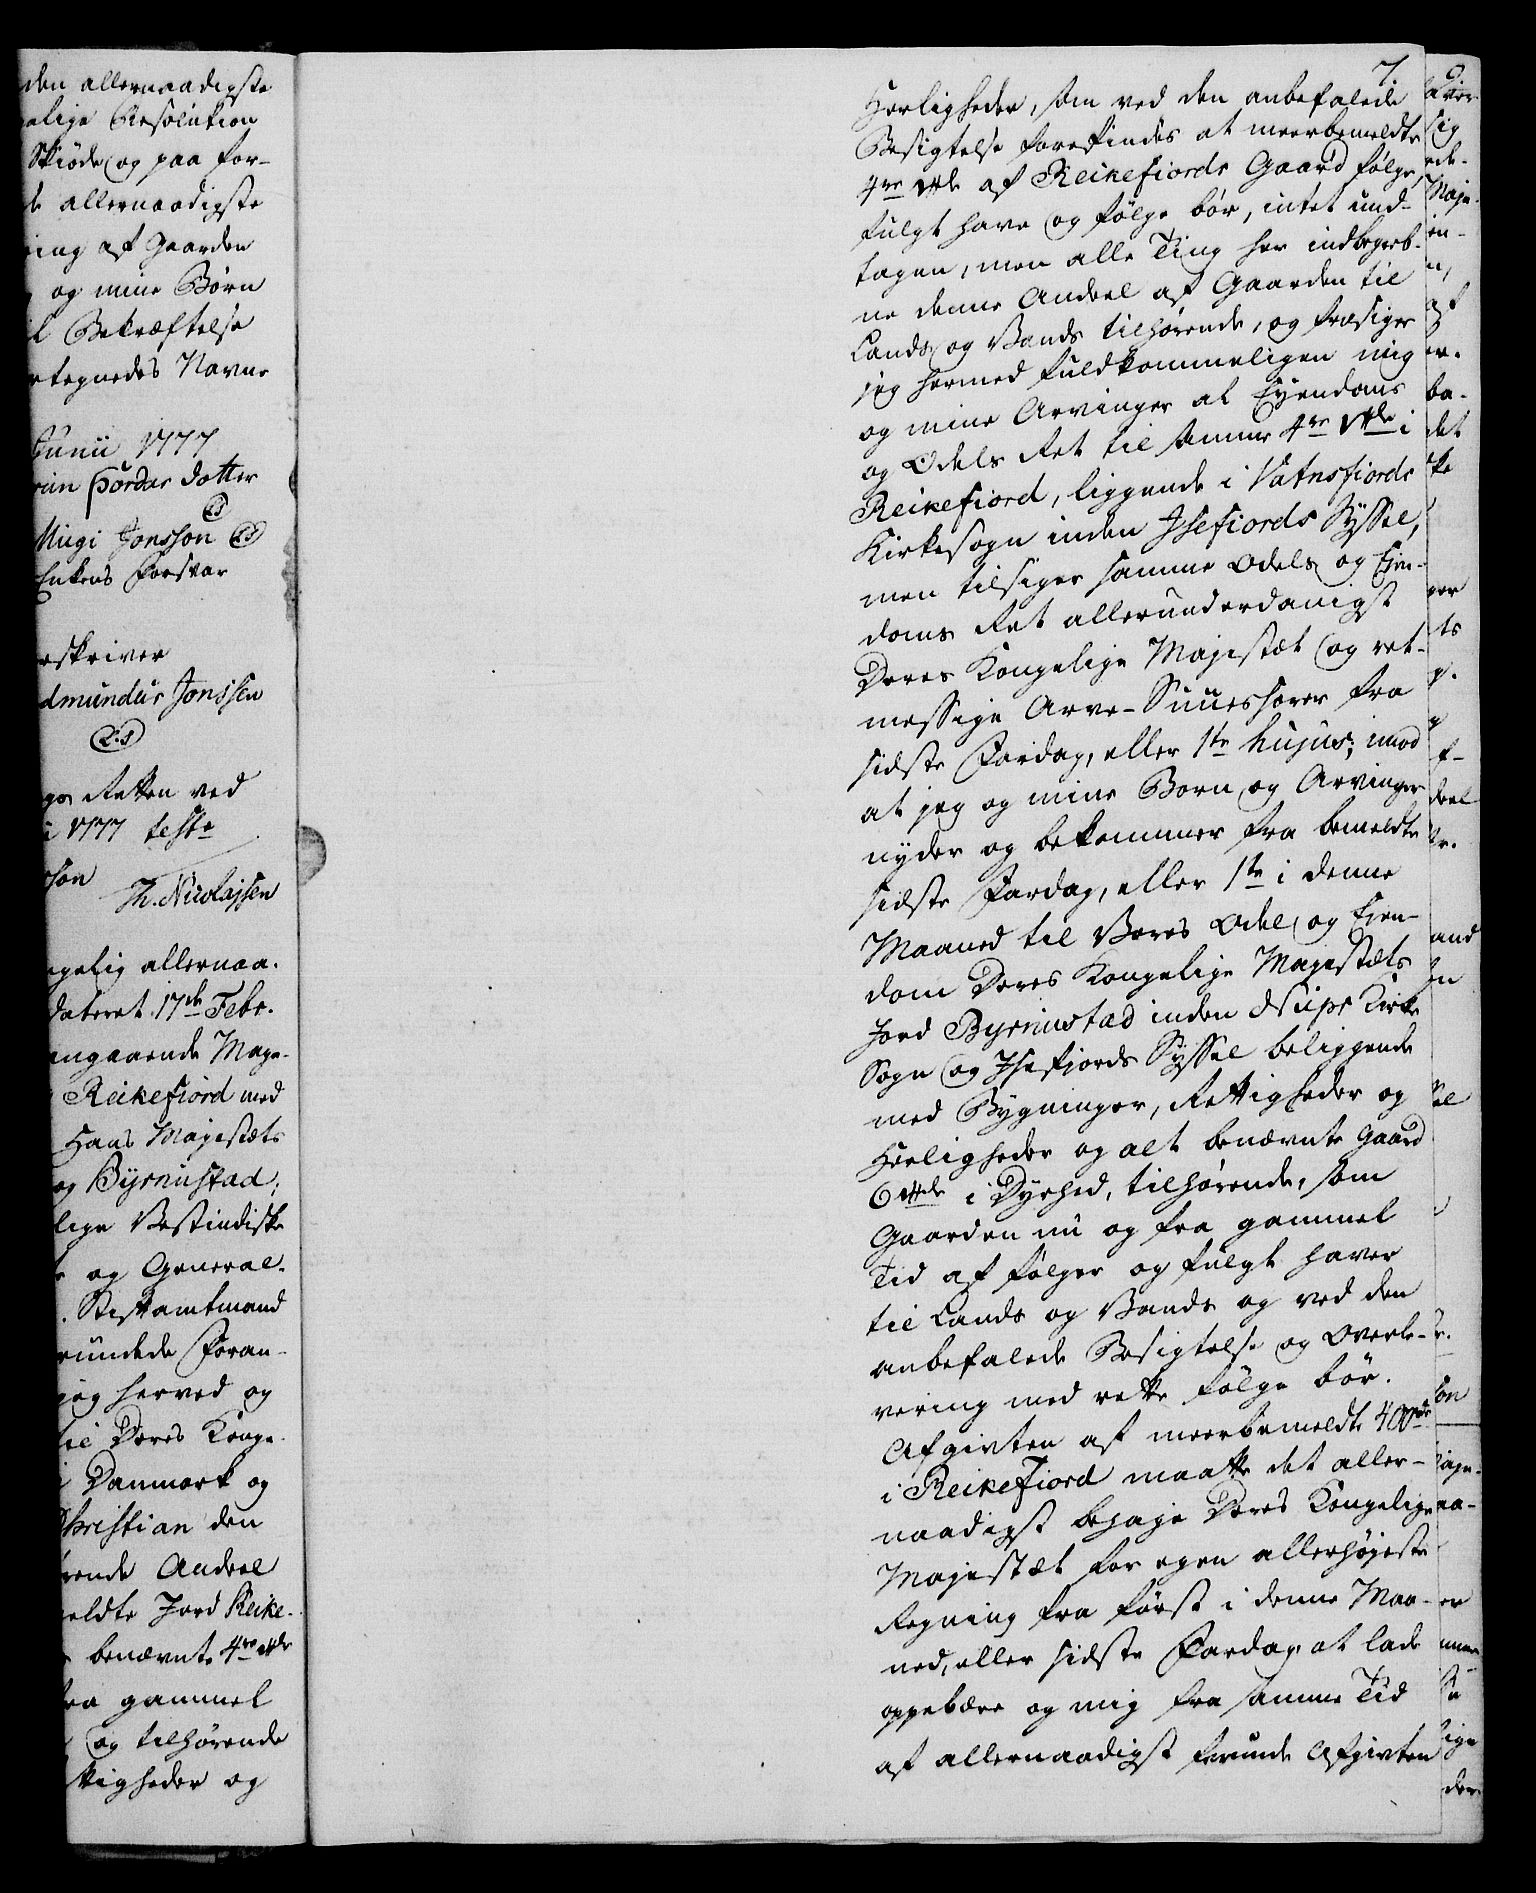 den allernaadigste
Resolution
Skiöde og paa for-
allernaadigste
af Gaarden
og mine Börn
Bekræftelse
Navne
Junii 1777
Þordar dotter
Jonsson
Enkens Forsvar
Jonssen
L.S
Retten ved
1777 teste
Th. Nicolajsen
allernaa-
dateret 17de Febr.
angaaende Mage-
Reikefiord med
Hans Majestæts
og Byrnustad;
Vestindiske
og General-
Stiftamtmand
Foran-
jeg herved og
Deres Konge-
Danmark og
Christian den
Andeel
Jord Reike-
benævnte 4re
gammel
og tilhörende
og
7.
Herligheder, som ved den anbefalede
Besigtelse forefindes at meerbemeldte
4re af Reikefiords Gaard fölge,
fulgt have og fölge bör, intet und-
tagen, men alle Ting her indbegreb-
ne denne Andeel af Gaarden til
Lands og Vands tilhörende, og frasiger
jeg hermed fuldkommeligen mig
og mine Arvinger al Eyendoms
og Odels Ret til samme 4re i
Reikefiord, liggende i Vatnsfiords
Kirkesogn inden Isefiords Syssel,
men tilsiger samme Odels og Ejen-
doms Ret allerunderdanigst
Deres Kongelige Majestæt og ret-
messige Arve-Successorer fra
sidste Fardag, eller 1te hujus; imod
at jeg og mine Börn og Arvinger
nyder og bekommer fra bemeldte
sidste Fardag, eller 1te i denne
Maaned til Vores Odel og Ejen-
dom Deres Kongelige Majestæts
Jord Byrnustad inden Nups Kirke
Sogn og Isefjords Syssel beliggende
med Bygninger, Rettigheder og
Herligheder og alt benævnte Gaard
6 i Dyrhed, tilhörende, som
Gaarden nu og fra gammel
Tid af fölger og fulgt haver
til Lands og Vands og ved den
anbefalede Besigtelse og Overle-
vering med rette fölge bör.
Afgivten af meerbemeldte
i Reikefiord maatte det aller-
naadigst behage Deres Kongelige
Majestæt for egen allerhöjeste
Regning fra först i denne Maa-
ned, eller sidste Fardag, at lade
oppebære og mig fra samme Tid
af allernaadigst forunde Afgivten